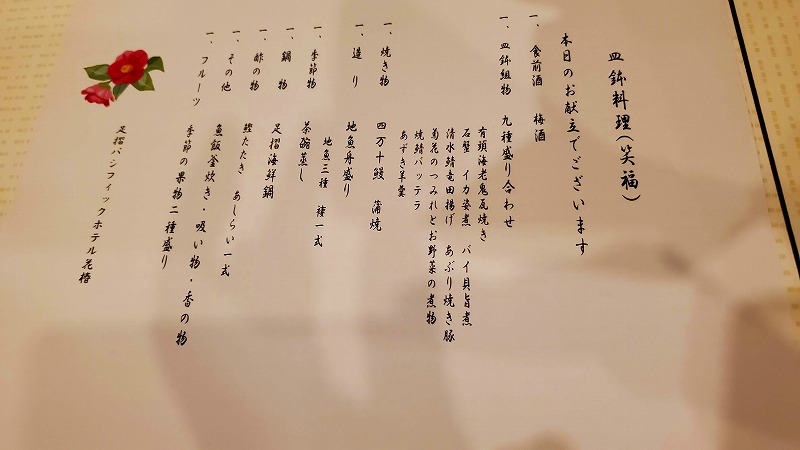 皿鉢料理(笑福)
本日のお献立でございます
一、食前酒 梅酒
一、皿鉢組物 九種盛り合わせ
有頭海老鬼瓦焼き
石蟹 イカ姿煮 バイ貝旨煮
清水鯖竜田揚げ あぶり焼き豚
菊花のつみれとお野菜の煮物
焼鯖バッテラ
あずき羊羹
一、焼き物 四万十鰻 蒲焼
一、造り 地魚舟盛り
地魚三種 褄一式
一、季節物 茶碗蒸し
一、鍋物 足摺海鮮鍋
一、酢の物 鰹たたき あしらい一式
一、その他 魚飯釜炊き・吸い物・香の物
一、フルーツ 季節の果物二種盛り
足摺パシフィックホテル花椿